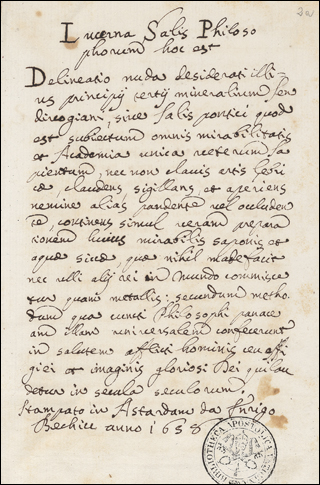 Lucerna Salis Philoso
phorum hoc est
Delineatio nuda desiderati illi
us principij tertij mineralium Sen
divogiani, sive Salis pontici quod
est subiectum omnis mirabilitatis
et Academia unica veterum sa
pientum, nec non clavis artis Gebri
cæ, claudens, sigillans, et aperiens
nemine alias pandente vel occluden
te, continens simul veram præpara
tionem huius mirabilis saponis et
aquæ siccæ, quæ nihil madefacit
nec ulli alij rei in Mundo commisce
tur quam metallis; secundum metho
dum qua cuncti Philosophi panace
am illam universalem confecerunt
in salutem afflicti hominis ceu effi
giei et imaginis gloriosi Dei qui lau
detur in secula seculorum,
Stampato in Astardam da Enrigo
anno 1658
BIBLIOTHECA APOSTOLICA